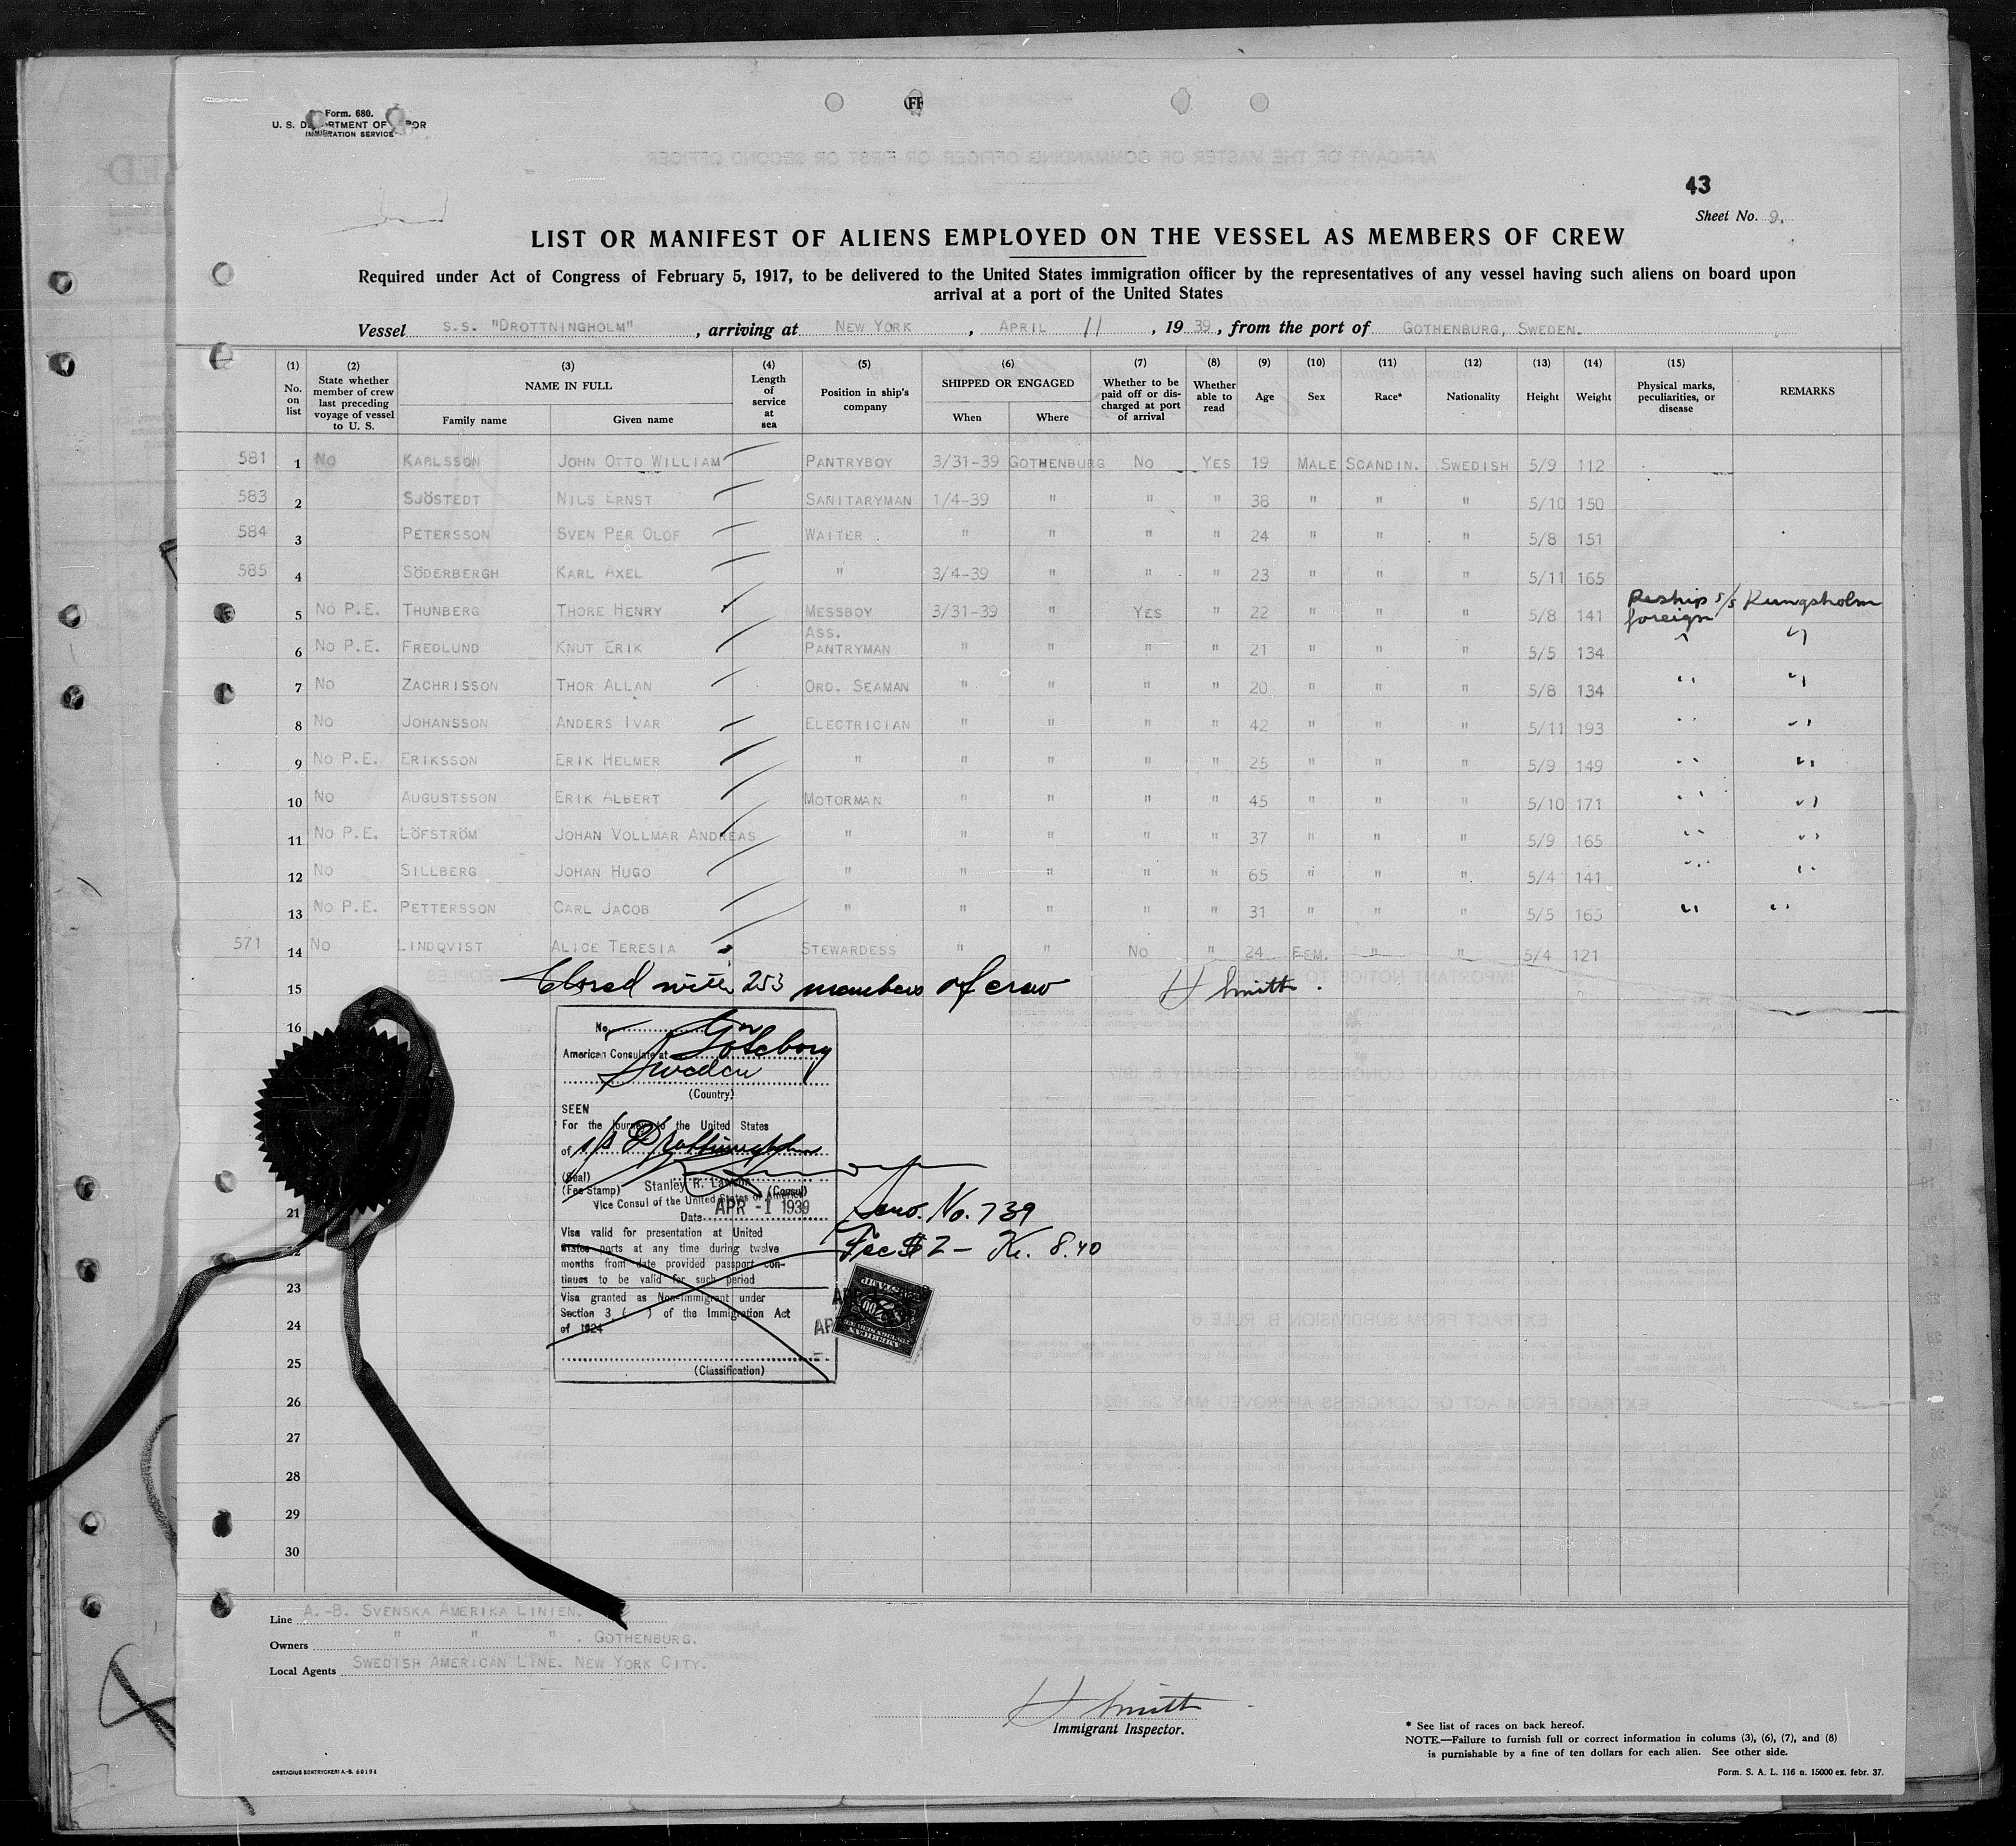 Form. 680.
U. S. DEPARTMENT OF LABOR
IMMIGRATION SERVICE
43
Sheet No. 9.
LIST OR MANIFEST OF ALIENS EMPLOYED ON THE VESSEL AS MEMBERS OF CREW
Required under Act of Congress of February 5, 1917, to be delivered to the United States immigration officer by the representatives of any vessel having such aliens on board upon
arrival at a port of the United States
Vessel S.S. "DROTTNINGHOLM", arriving at NEW YORK, APRIL 11, 1939, from the port of GOTHENBURG, SWEDEN.
(1) No. on list (2) State whether member of crew last preceding voyage of vessel to U. S. (3) NAME IN FULL Family name Given name (4) Length of service at sea (5) Position in ship's company (6) SHIPPED OR ENGAGED When Where (7) Whether to be paid off or discharged at port of arrival (8) Whether able to read (9) Age (10) Sex (11) Race* (12) Nationality (13) Height (14) Weight (15) Physical marks, peculiarities, or disease REMARKS
581 1 No KARLSSON JOHN OTTO WILLIAM PANTRYBOY 3/31-39 GOTHENBURG No YES 19 MALE SCANDIN. SWEDISH 5/9 112
583 2 SJÖSTEDT NILS ERNST SANITARYMAN 1/4-39 " " " 38 " " " 5/10 150
584 3 PETERSSON SVEN PER OLOF WAITER " " " " 24 " " " 5/8 151
585 4 SÖDERBERGH KARL AXEL " 3/4-39 " " " 23 " " " 5/11 165
5 No P.E. THUNBERG THORE HENRY MESSBOY 3/31-39 " YES " 22 " " " 5/8 141 Reship foreign s/s Kungsholm
6 No P.E. FREDLUND KNUT ERIK ASS. PANTRYMAN " " " " 21 " " " 5/5 134 " "
7 No ZACHRISSON THOR ALLAN ORD. SEAMAN " " " " 20 " " " 5/8 134 " "
8 No JOHANSSON ANDERS IVAR ELECTRICIAN " " " " 42 " " " 5/11 193 " "
9 No P.E. ERIKSSON ERIK HELMER " " " " " 25 " " " 5/9 149 " "
10 No AUGUSTSSON ERIK ALBERT MOTORMAN " " " " 45 " " " 5/10 171 " "
11 No P.E. LÖFSTRÖM JOHAN VOLLMAR ANDREAS " " " " " 37 " " " 5/9 165 " "
12 No SILLBERG JOHAN HUGO " " " " " 65 " " " 5/4 141 " "
13 No P.E. PETTERSSON CARL JACOB " " " " " 31 " " " 5/5 165 " "
571 14 No LINDQVIST ALICE TERESIA STEWARDESS " " No " 24 FEM. " " 5/4 121
15 Closed with 253 members of crew H Smith.
16
No.
American Consulate at Göteborg
Sweden
(Country)
SEEN
For the journey to the United States
of s/s Drottningholm
(Seal)
(Fee Stamp) Stanley R. (Consul)
Vice Consul of the United States of America
Date APR -1 1939
Serv. No. 739
Fee $ 2 - Kr. 8.40
Visa valid for presentation at United
States ports at any time during twelve
months from date provided passport con-
tinues to be valid for such period
Visa granted as Non-immigrant under
Section 3 ( ) of the Immigration Act
of 1924
(Classification)
21
22
23
24
25
26
27
28
29
30
Line A.-B. SVENSKA AMERIKA LINIEN.
Owners " " ". GOTHENBURG.
Local Agents SWEDISH AMERICAN LINE. NEW YORK CITY.
H Smith
Immigrant Inspector.
* See list of races on back hereof.
NOTE.—Failure to furnish full or correct information in colums (3), (6), (7), and (8)
is purnishable by a fine of ten dollars for each alien. See other side.
Form. S. A. L. 116 n. 15000 ex. febr. 37.